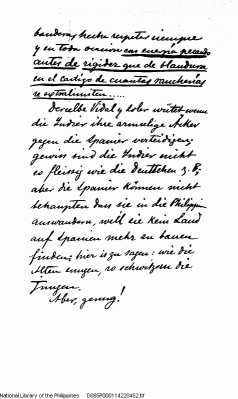 bandera y hecha respetar siempre
y en toda ocasion con energía pecando
antes de rigidez que de blandura
en el castigo de cuantas rancherías
se extralimiten.....
Derselbe Vidal y Soler wütet wenn
die Indier ihre armselige Acker
gegen die Spanier verteidigen;
gewiss sind die Indier nicht
so fleissig wie die Deutschen z. B;
aber die Spanier können nicht
behaupten dass sie in die Philippin
auswandern, weil sie kein Land
auf Spanien mehr zu bauen
finden; hier ist zu sagen: wie die
Alten sungen, so die
Jungen.
Aber, genug!
National Library of the Philippines